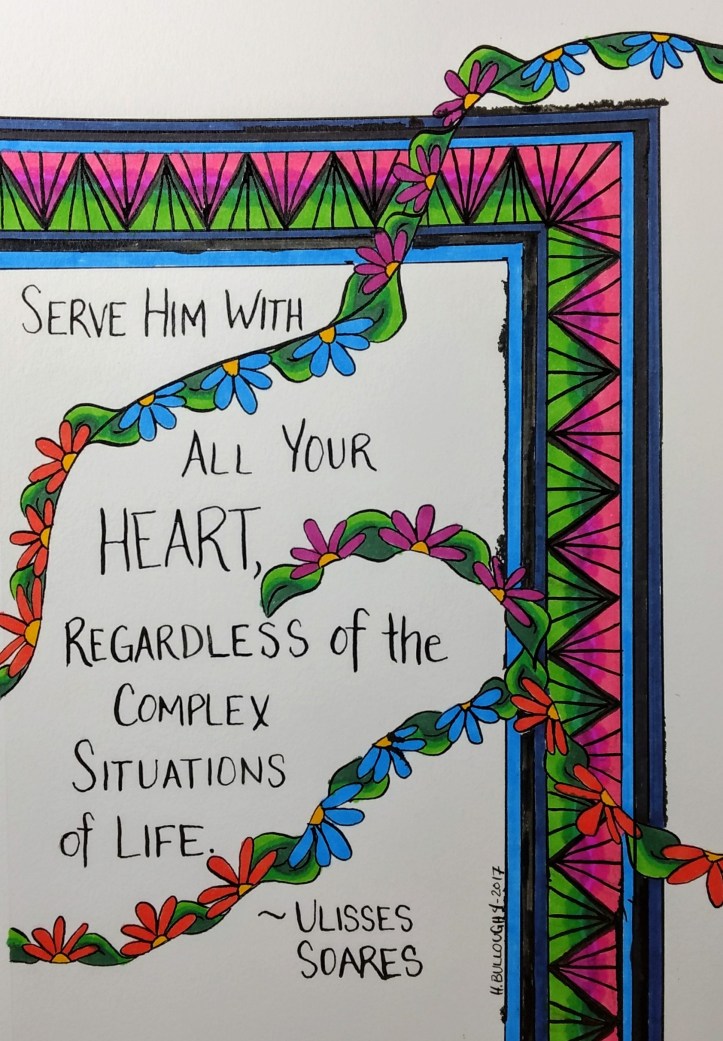 SERVE HIM WITH
ALL YOUR
HEART,
REGARDLESS of the
COMPLEX
SITUATIONS
of LIFE.
~ ULISSES
SOARES
H. BULLOUGH 4-2017